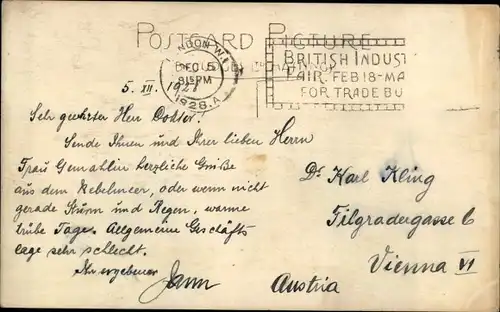 POSTCARD PICTURE
LONDON W.1
DEC 5
8 15 PM
1928. A
BRITISH INDUST
FAIR. FEB 18-MA
FOR TRADE BU
5. XII. 192
Sehr geehrter Herr Doktor.
Sende Ihnen und Ihrer lieben Herrn
Frau Gemahlin herzliche Grüße
aus dem Nebelmeer, oder wenn nicht
gerade Sturm und Regen, warme
trübe Tage. Allgemeine Geschäfts
lage sehr schlecht.
Ihr ergebener
Dr Karl Kling
Filgradergasse 6
Vienna VI
Austria